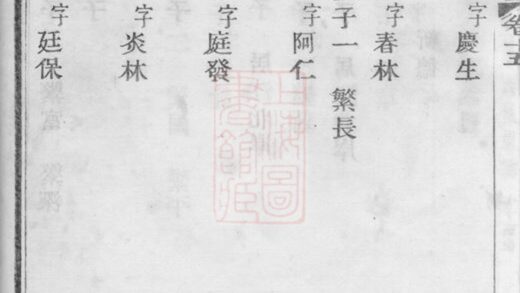 卷十五
字慶生
字春林
子一 繁長
字阿仁
字庭發
字炎林
字廷保
上海圖書館藏